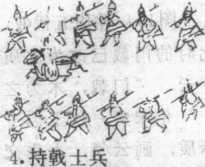 4.持戟士兵